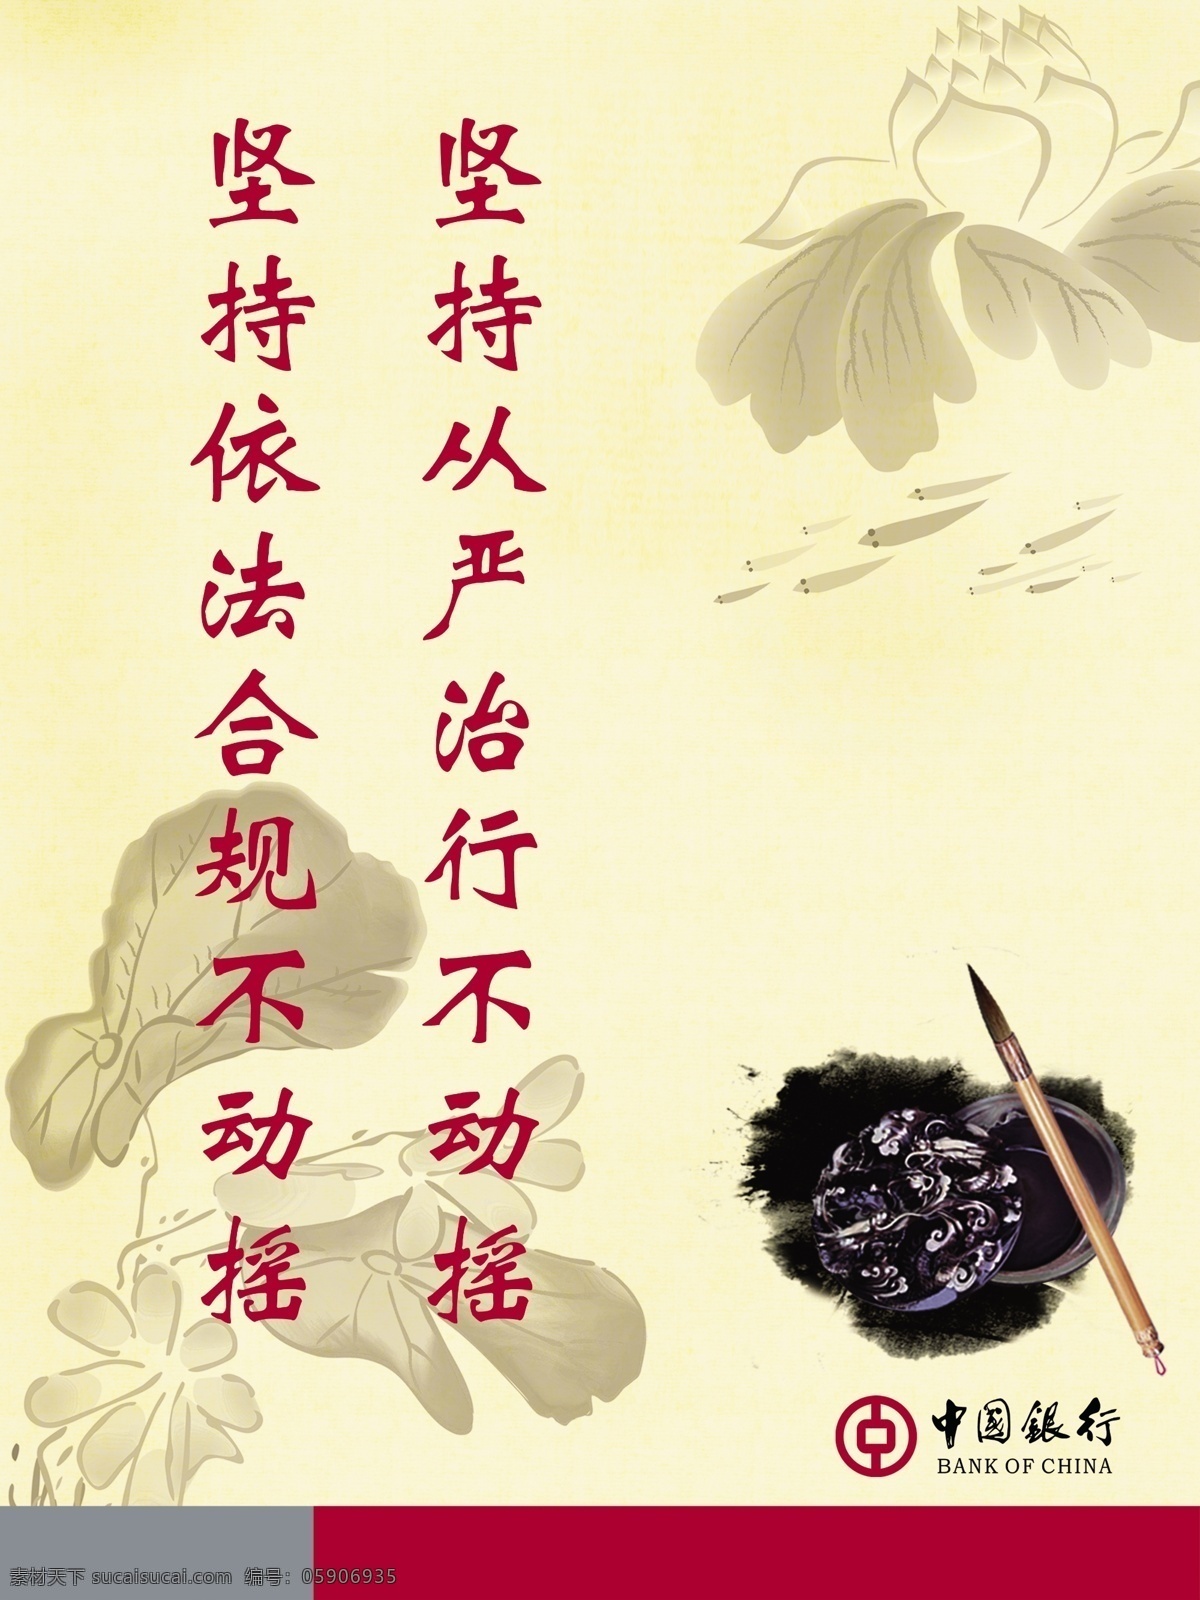 坚持从严治行不动摇
坚持依法合规不动摇
中国銀行
BANK OF CHINA
素材天下 sucaisucai.com 编号：05906935